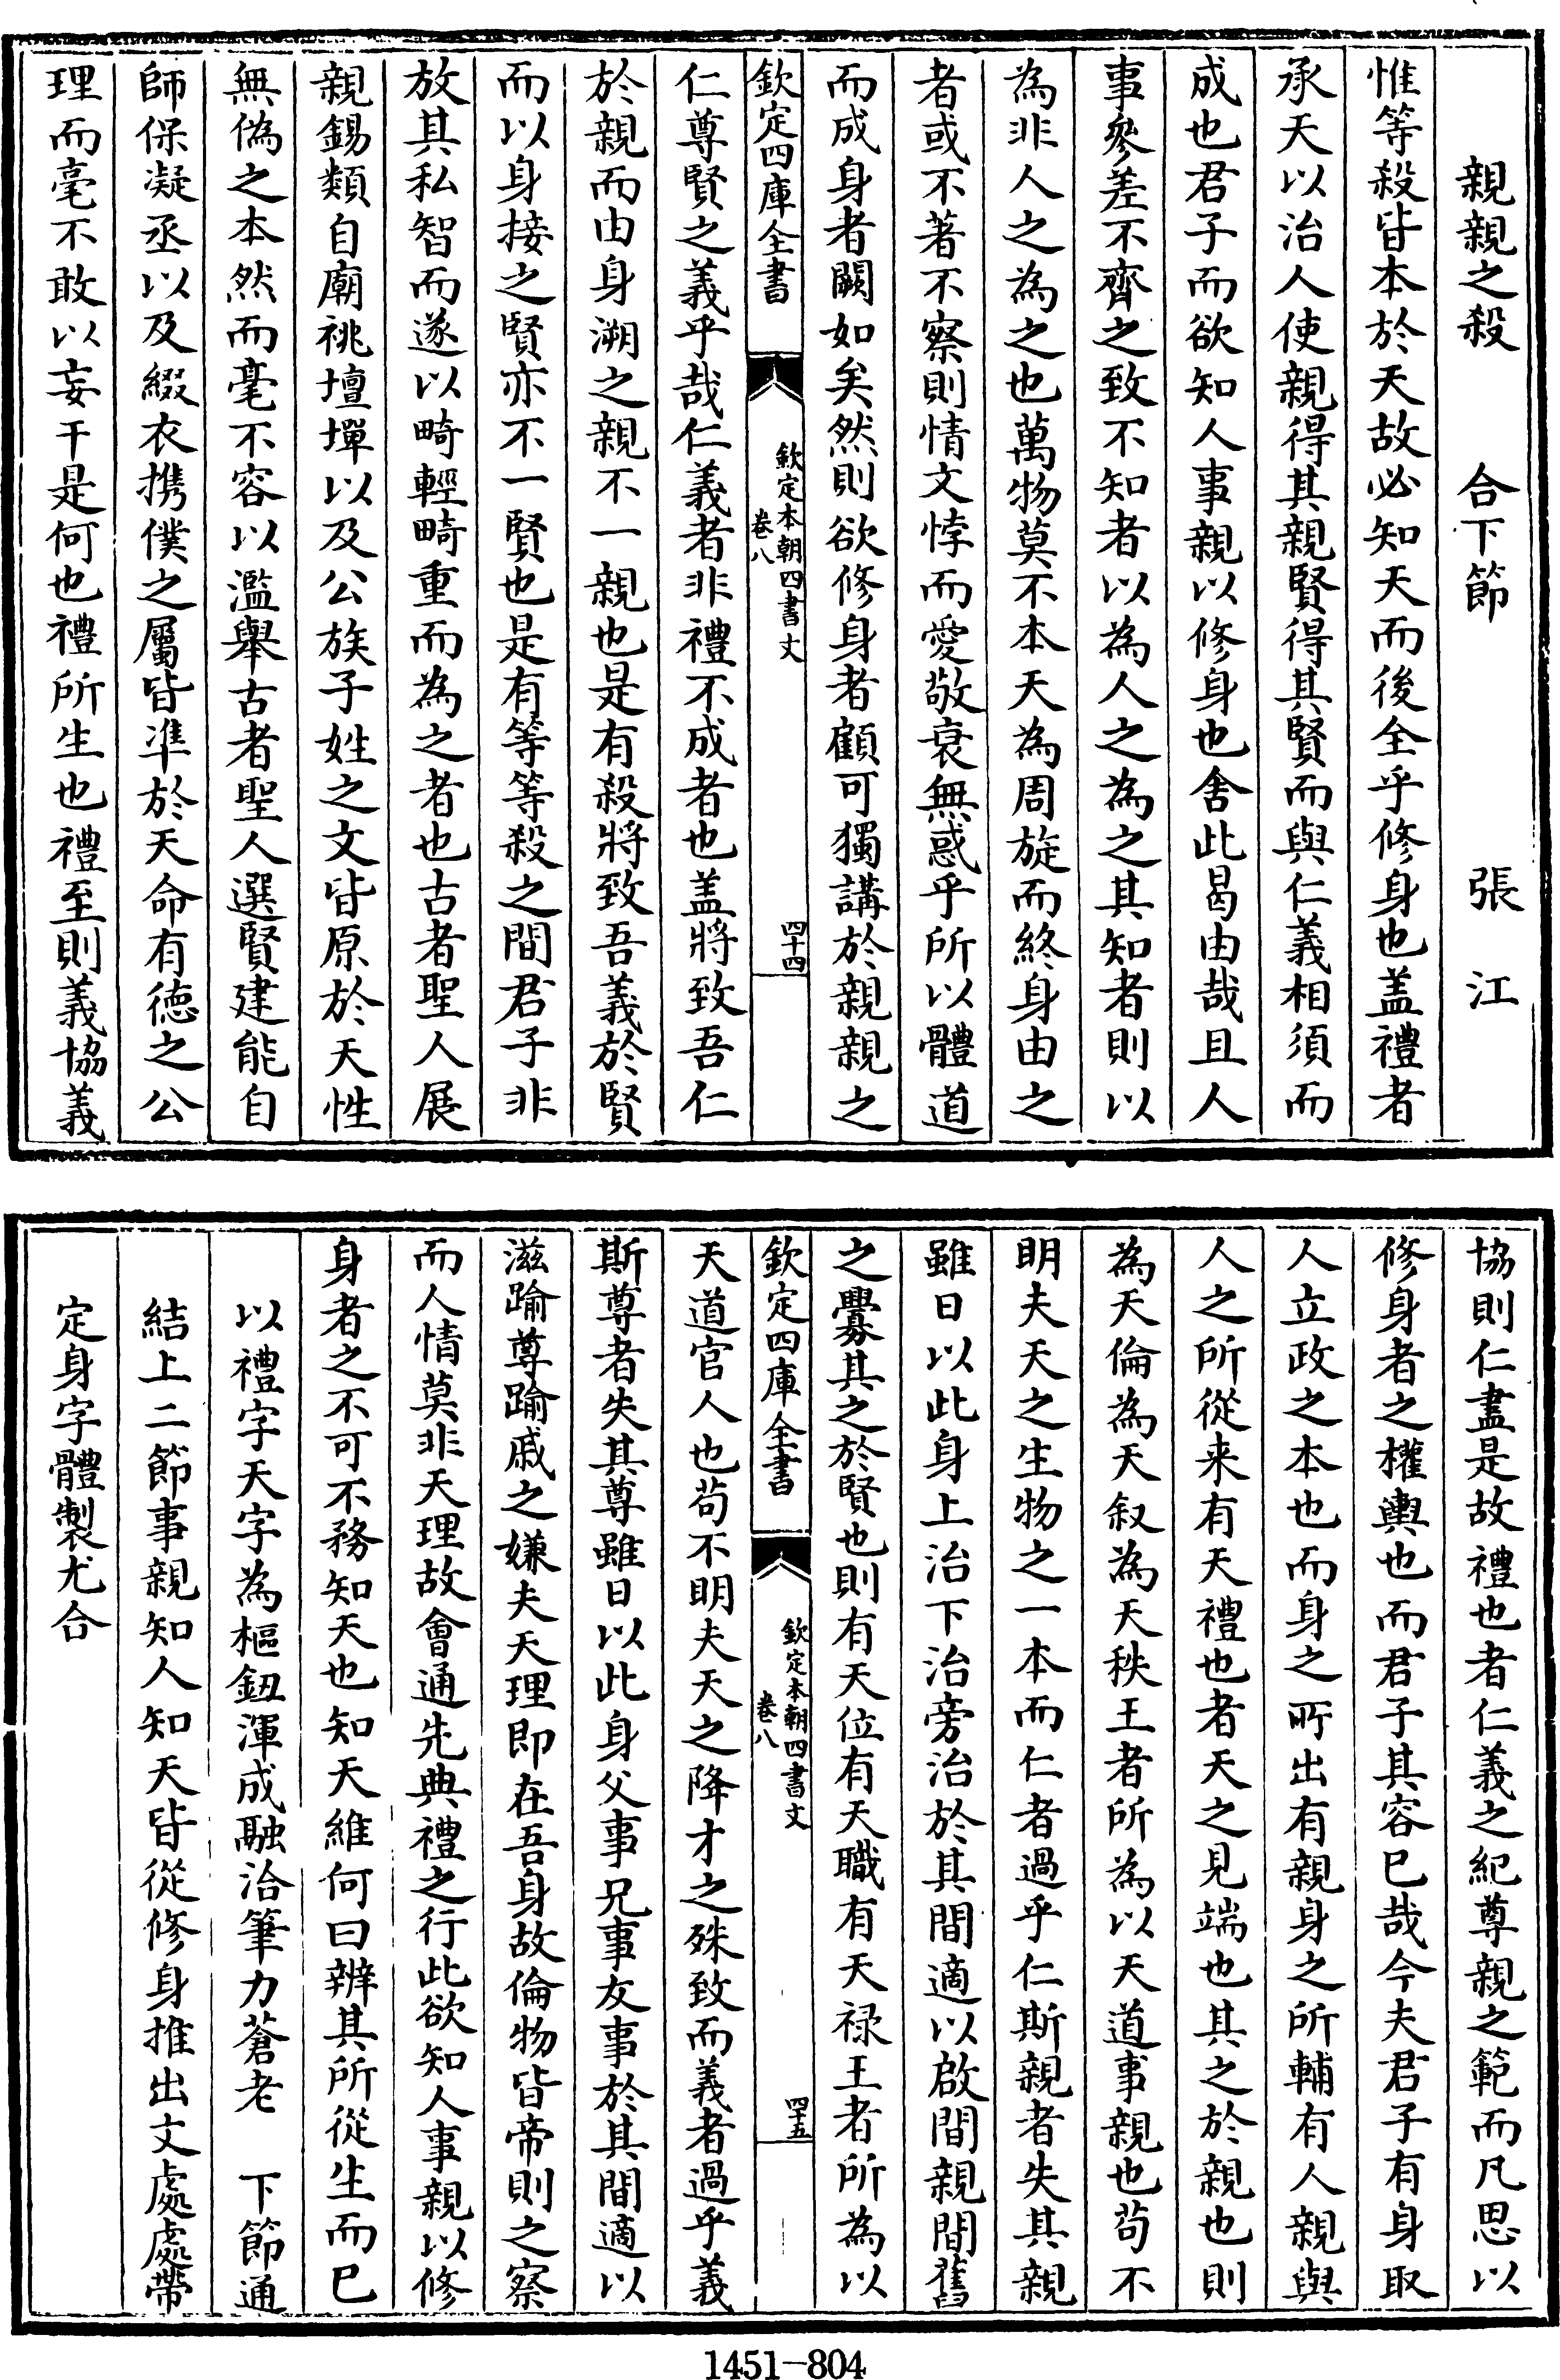 親親之殺　合下節　張江
惟等殺皆本於天故必知天而後全乎修身也盖禮者
承天以治人使親得其親賢得其賢而與仁義相須而
成也君子而欲知人事親以修身也舍此曷由哉且人
事參差不齊之致不知者以為人之為之其知者則以
為非人之為之也萬物莫不本天為周旋而終身由之
者或不著不察則情文悖而愛敬衰無惑乎所以體道
而成身者闕如矣然則欲修身者顧可獨講於親親之
欽定四庫全書
欽定本朝四書文
卷八
四十四
仁尊賢之義乎哉仁義者非禮不成者也盖將致吾仁
於親而由身溯之親不一親也是有殺將致吾義於賢
而以身接之賢亦不一賢也是有等等殺之間君子非
放其私智而遂以畸輕畸重而為之者也古者聖人展
親錫類自廟祧壇墠以及公族子姓之文皆原於天性
無偽之本然而毫不容以濫舉古者聖人選賢建能自
師保凝丞以及綴衣携僕之屬皆準於天命有德之公
理而毫不敢以妄干是何也禮所生也禮至則義協義
協則仁盡是故禮也者仁義之紀尊親之範而凡思以
修身者之權輿也而君子其容已哉今夫君子有身取
人立政之本也而身之所出有親身之所輔有人親與
人之所從来有天禮也者天之見端也其之於親也則
為天倫為天叙為天秩王者所為以天道事親也苟不
明夫天之生物之一本而仁者過乎仁斯親者失其親
雖日以此身上治下治旁治於其間適以啟間親間舊
之釁其之於賢也則有天位有天職有天禄王者所為以
欽定四庫全書
欽定本朝四書文
卷八
四十五
天道官人也苟不明夫天之降才之殊致而義者過乎義
斯尊者失其尊雖日以此身父事兄事友事於其間適以
滋踰尊踰戚之嫌夫天理即在吾身故倫物皆帝則之察
而人情莫非天理故會通先典禮之行此欲知人事親以修
身者之不可不務知天也知天維何曰辨其所從生而已
以禮字天字為樞鈕渾成融洽筆力蒼老　下節通
結上二節事親知人知天皆從修身推出文處處帶
定身字體製尤合
1451—804